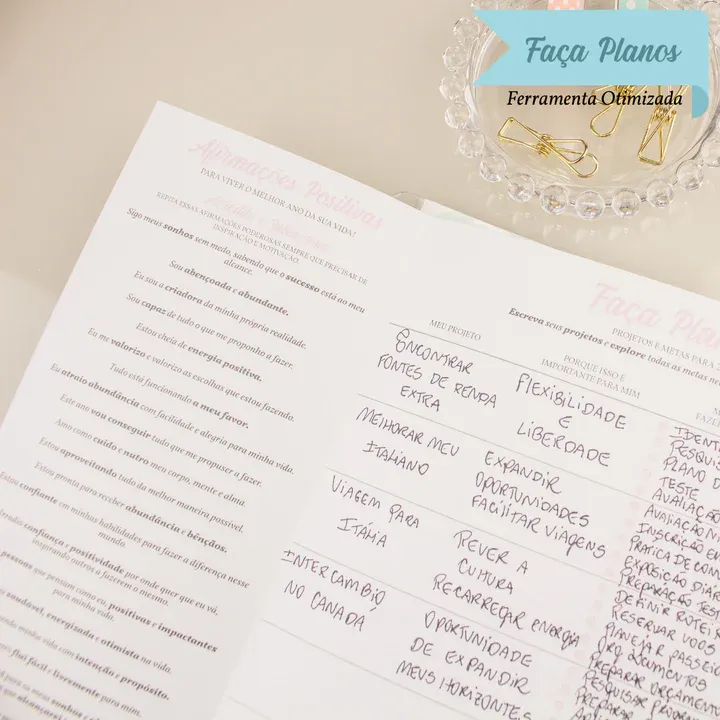 Faça Planos
Ferramenta Otimizada
Afirmações Positivas
PARA VIVER O MELHOR ANO DA SUA VIDA!
REPITA ESSAS AFIRMAÇÕES PODEROSAS SEMPRE QUE PRECISAR DE
INSPIRAÇÃO E MOTIVAÇÃO.
Sigo meus sonhos sem medo, sabendo que o sucesso está ao meu
alcance.
Sou abençoada e abundante.
Eu sou a criadora da minha própria realidade.
Sou capaz de tudo o que me proponho a fazer.
Estou cheia de energia positiva.
Eu me valorizo e valorizo as escolhas que estou fazendo.
Tudo está funcionando a meu favor.
Eu atraio abundância com facilidade e alegria para minha vida.
Este ano vou conseguir tudo que me propuser a fazer.
Amo como cuido e nutro meu corpo, mente e alma.
Estou aproveitando tudo da melhor maneira possível.
Estou pronta para receber abundância e bênçãos.
Estou confiante em minhas habilidades para fazer a diferença nesse
mundo.
confiança e positividade por onde quer que eu vá,
inspirando outros a fazerem o mesmo.
pessoas que pensam como eu, positivas e impactantes
para minha vida.
saudável, energizada e otimista na vida.
minha vida com intenção e propósito.
flui fácil e livremente para mim.
para os meus sonhos e
Faça Plan
PROJETOS E METAS PARA 2
Escreva seus projetos e explore todas as metas ne
MEU PROJETO
PORQUE ISSO É
IMPORTANTE PARA MIM
FAZE
ENCONTRAR
FONTES DE RENDA
EXTRA
FLEXIBILIDADE
E
LIBERDADE
IDENT
PESQUI
PLANO D
TESTE
AVALIAÇÃO
MELHORAR MEU
ITALIANO
EXPANDIR
OPORTUNIDADES
FACILITAR VIAGENS
AVALIAÇÃO N
INSCRIÇÃO E
PRATICA DE CON
EXPOSIÇÃO DIÁR
PREPARAÇÃO TEST
VIAGEM PARA
ITÁLIA
REVER A
CULTURA
RECARREGAR ENERGIA
DEFINIR ROTEI
RESERVAR VOOS
PLANEJAR PASSEIO
ORG DOCUMENTOS
PREPARAR ORÇAMENTO
INTERCAMBIO
NO CANADÁ
OPORTUNIDADE
DE EXPANDIR
MEUS HORIZONTES
PESQUISAR PROGRAM
PREPARAR